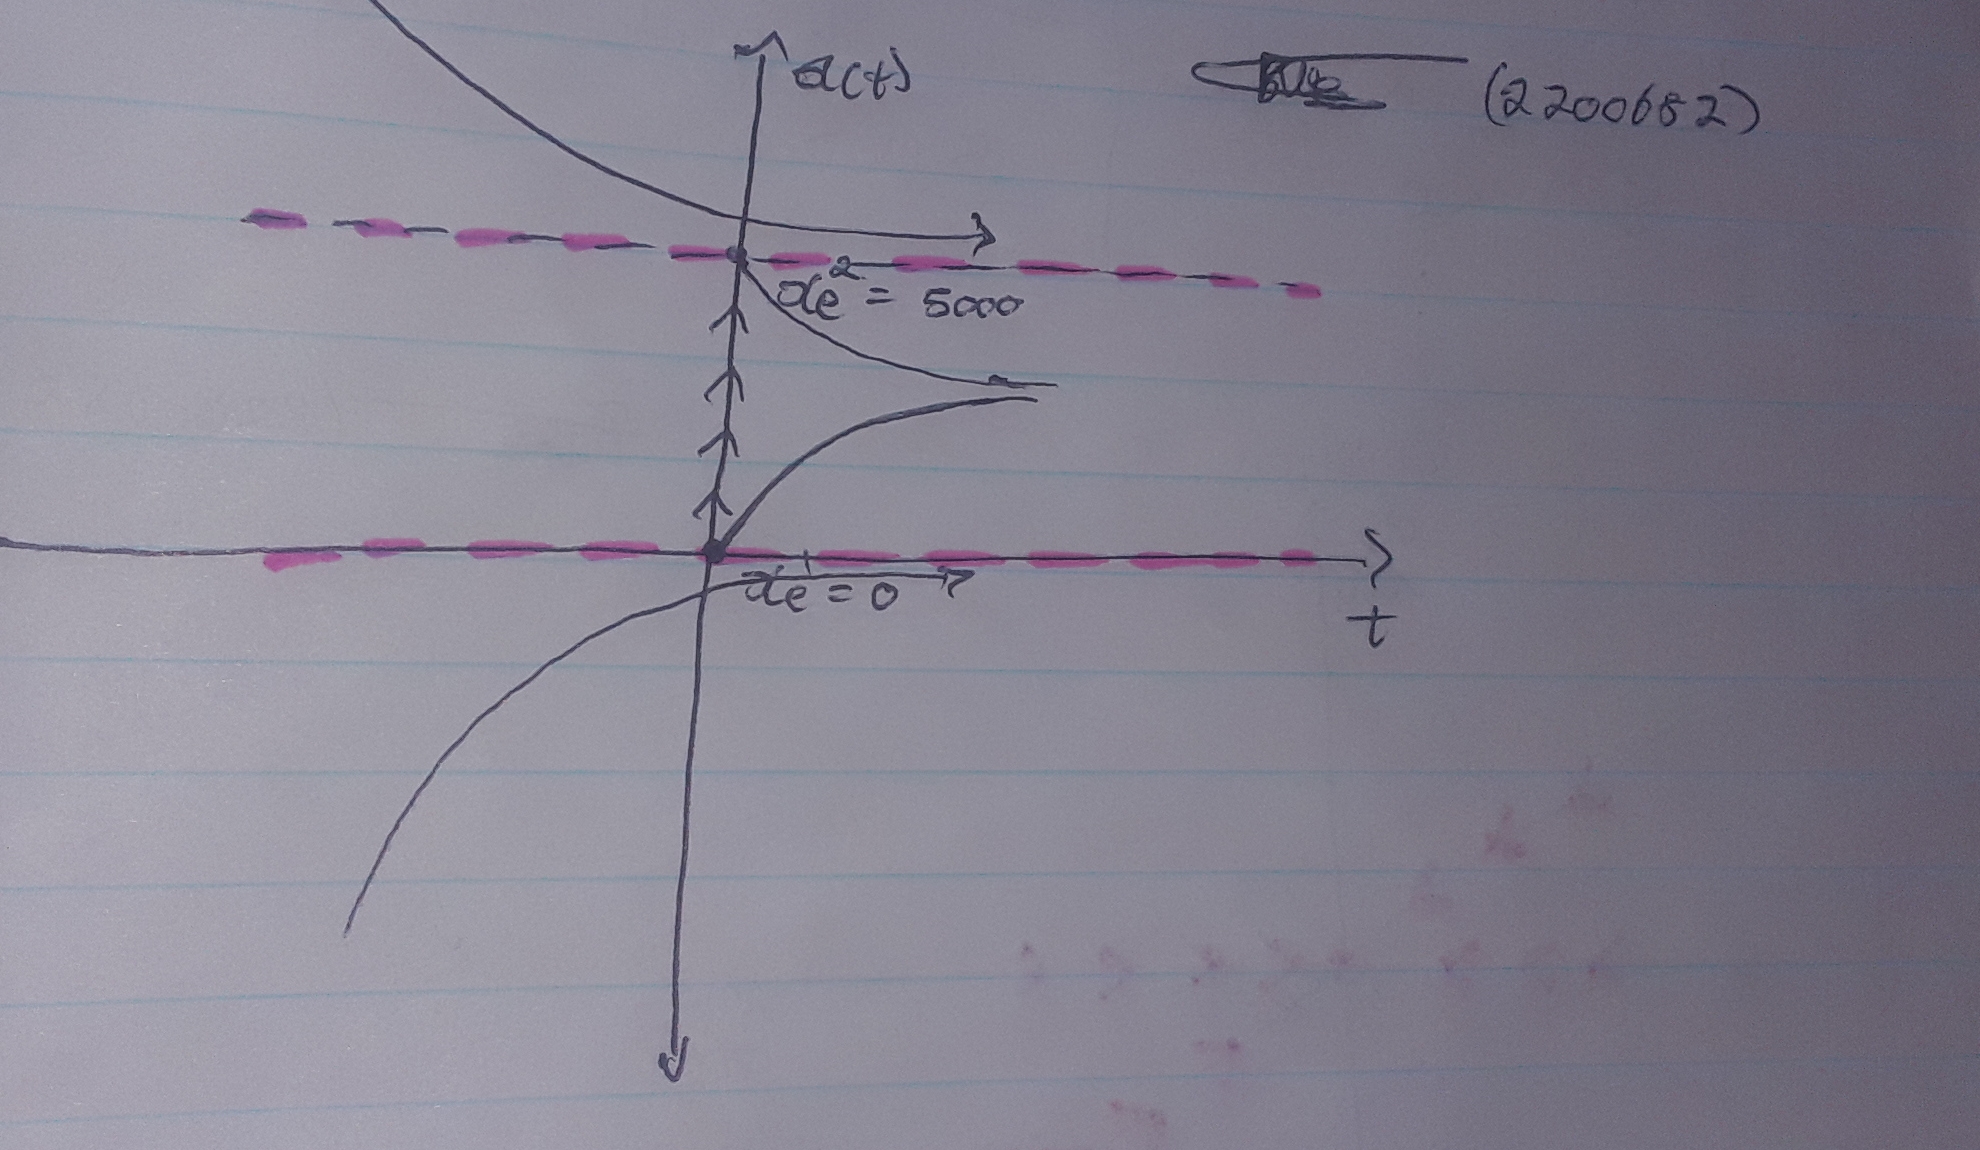 x(t)
(2200682)
xe² = 5000
xe¹ = 0
t